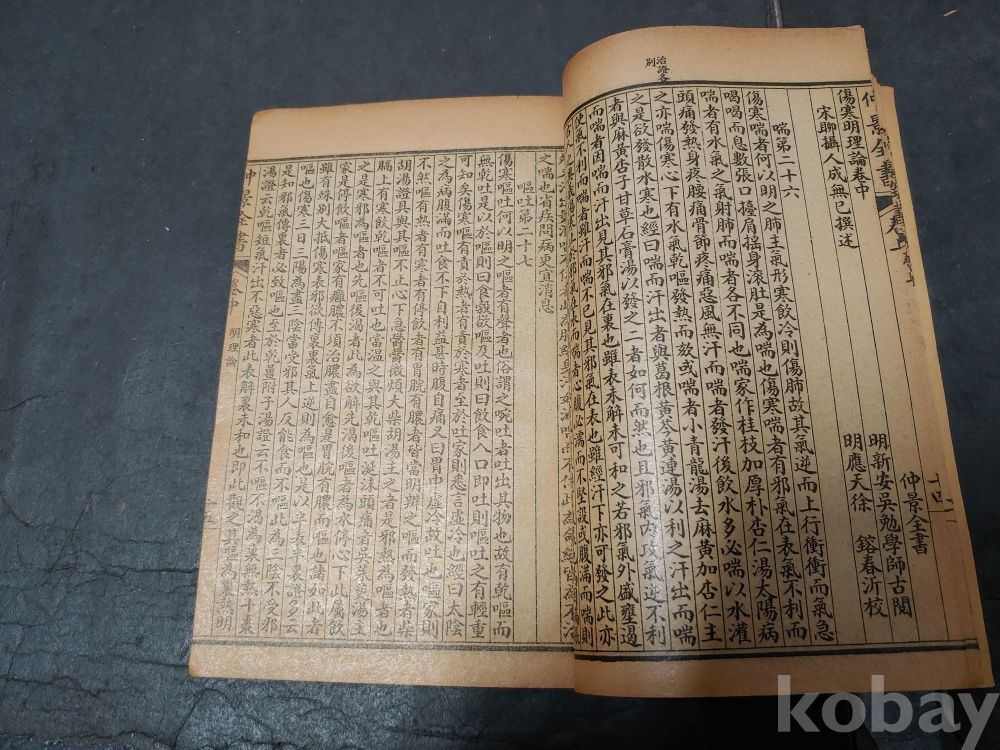 治證各
別
仲景全書
傷寒明理論卷中
宋聊攝人成無已撰述
明新安吳勉學師古閱
明應天徐 鎔春沂校
喘第二十六
傷寒喘者何以明之肺主氣形寒飲冷則傷肺故其氣逆而上行衝衝而氣急
喝喝而息數張口擡肩搖身滾肚是為喘也傷寒喘者有邪氣在表氣不利而
喘者有水氣之氣射肺而喘者各不同也喘家作桂枝加厚朴杏仁湯太陽病
頭痛發熱身疼腰痛骨節疼痛惡風無汗而喘者發汗後飲水多必喘以水灌
之亦喘傷寒心下有水氣乾嘔發熱而欬或喘者小青龍湯去麻黃加杏仁主
之是欲發散水寒也經曰喘而汗出者與葛根黃芩黃連湯以利之汗出而喘
者與麻黃杏子甘草石膏湯以發之二者如何而然也且邪氣內攻氣逆不利
而喘者因喘而汗出見其邪氣在裏也雖表未解未可和之若邪氣外盛壅遏
使氣不利而喘者雖汗而喘不已見其邪氣在表也雖經汗下亦可發之此亦
之喘也省疾問病更宜消息
嘔吐第二十七
傷寒嘔吐何以明之嘔者有聲者也俗謂之啘吐者吐出其物也故有乾嘔而
無乾吐是以於嘔則曰食穀欲嘔及吐則曰飲食入口即吐則嘔吐之有輕重
可知矣傷寒嘔有責於熱者有責於寒者至於吐家則悉言虛冷也經曰太陰
之為病腹滿而吐食不下自利益甚時腹自痛又曰胃中虛冷故吐也嘔家則
不然嘔有熱者有寒者有停飲者有胃脘有膿者皆當明辨之嘔而發熱者柴
胡湯證具與其嘔不止心下急鬱鬱微煩大柴胡湯主之者是邪熱為嘔者也
膈上有寒飲乾嘔者不可吐也當溫之與其乾嘔吐涎沫頭痛者吳茱萸湯主
之是寒邪為嘔者也先嘔後渴者此為欲解先渴後嘔者為水停心下此屬飲
家是停飲嘔者嘔家有癰膿不須治膿盡自愈是胃脘有膿而嘔也諸如此者
雖有殊別大抵傷寒表邪欲傳裏裏氣上逆則為嘔也是以半表半裏證多云
嘔也傷寒三日三陽為盡三陰當受邪其人反能食而不嘔此為三陰不受邪
是知邪氣傳裏者必致嘔也至於乾薑附子湯證云不嘔不渴為裏無熱十棗
湯證云乾嘔短氣汗出不惡寒者此表解裏未和也即此觀之其嘔為裏熱明
仲景全書 卷中 明理論